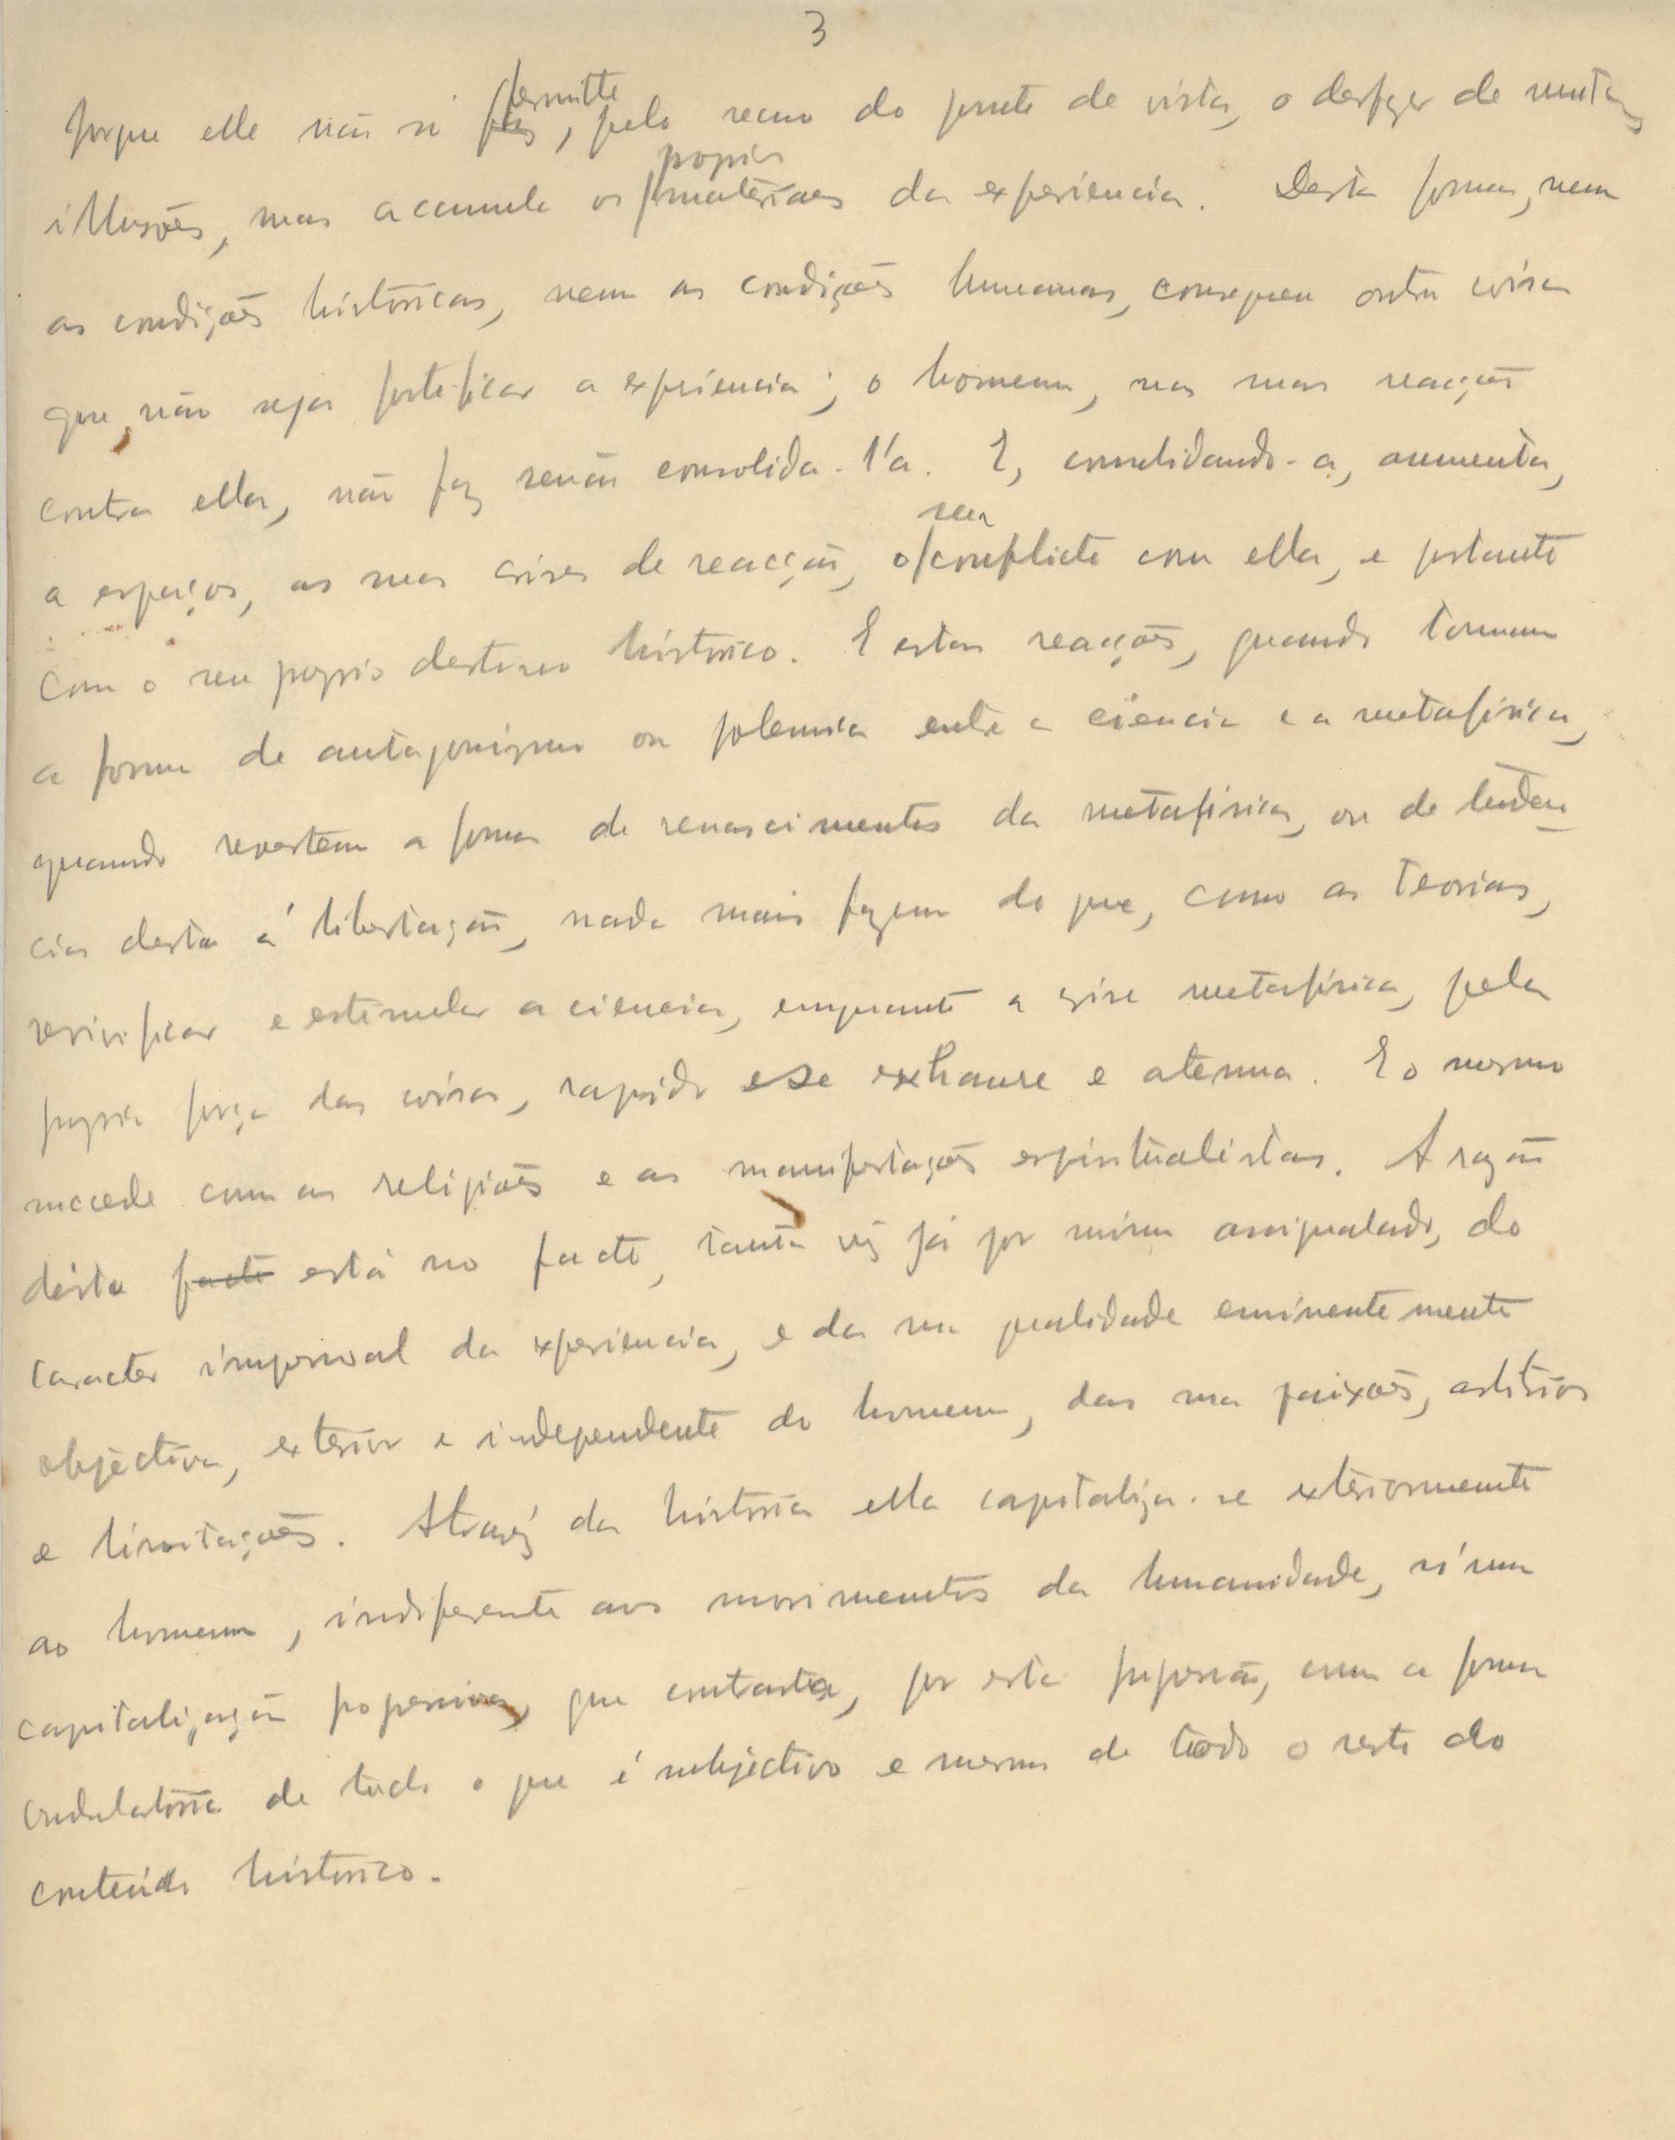 3
porque elle não só permitte, pelo recuo do ponto de vista, o desfazer de muitas
illusões, mas accumula os proprios materiaes da experiencia. Desta forma, nem
as condições históricas, nem as condições humanas, conseguem outra coisa
que não seja fortificar a experiencia; o homem, nas suas reacções
contra ella, não faz senão consolida-l'a. E, consolidando-a, aumenta,
a espaços, as suas crises de reacção, o seu conflicto com ella, e portanto
com o seu proprio destino histórico. E estas reacções, quando tomam
a forma de antagonismo ou polemica entre a ciencia e a metafísica,
quando revestem a forma de renascimentos da metafísica, ou de tenden
cias desta á libertação, nada mais fazem do que, como as teorias,
revivificar e estimular a ciencia, emquanto a crise metafísica, pela
propria força das coisas, rapido se exhaure e atenua. E o mesmo
succede com as religiões e as manifestações espiritualistas. A razão
désta facto está no facto, tanta vez já por mim assignalado, do
caracter impessoal da experiencia, e da sua qualidade eminentemente
objectiva, exterior e independente do homem, das suas paixões, arbitrios
e limitações. Atravez da história ella capitaliza-se exteriormente
ao homem, indiferente aos movimentos da humanidade, n'uma
capitalização progressiva, que contrasta, por esta progressão, com a forma
ondulatória de tudo o que é subjectivo e mesmo de todo o resto do
conteúdo histórico.